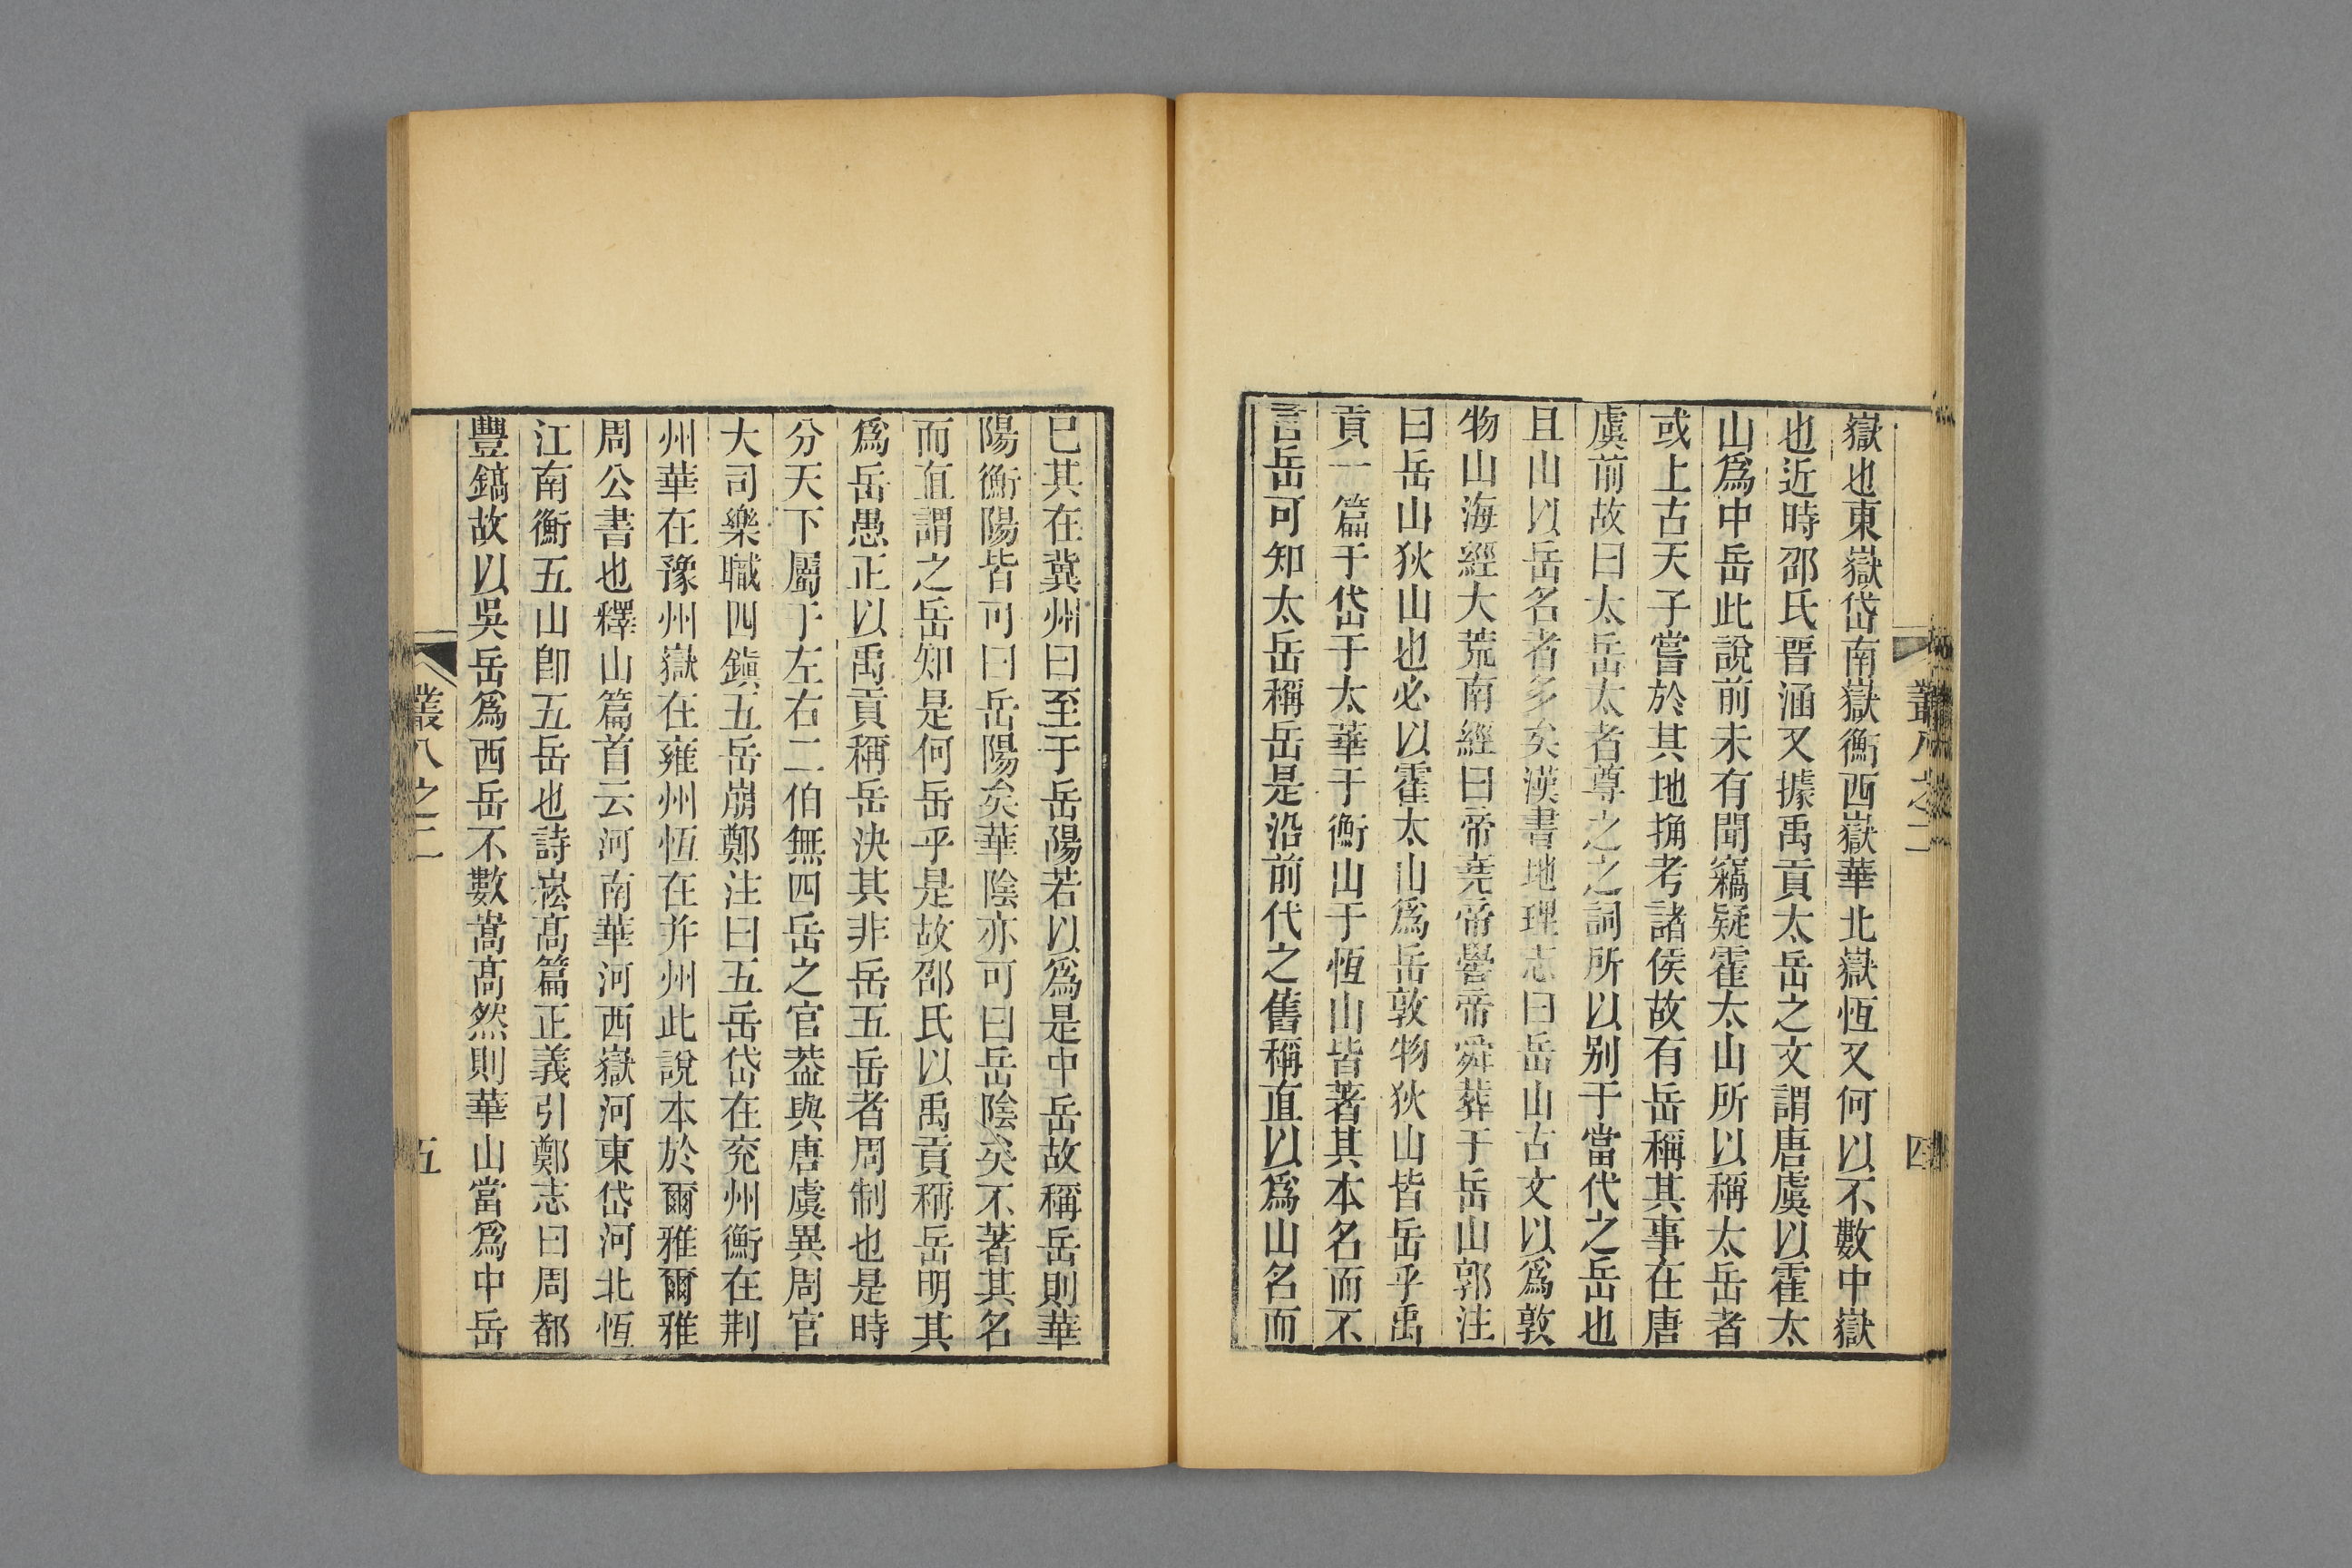 嶽也東嶽岱南嶽衡西嶽華北嶽恆又何以不數中嶽
也近時邵氏晋涵又據禹貢太岳之文謂唐虞以霍太
山爲中岳此說前未有聞竊疑霍太山所以稱太岳者
或上古天子嘗於其地捔考諸侯故有岳稱其事在唐
虞前故曰太岳太者尊之之詞所以别于當代之岳也
且山以岳名者多矣漢書地理志曰岳山古文以爲敦
物山海經大荒南經曰帝堯帝嚳帝舜葬于岳山郭注
曰岳山狄山也必以霍太山爲岳敦物狄山皆岳乎禹
貢一篇于岱于太華于衡山于恆山皆著其本名而不
言岳可知太岳稱岳是沿前代之舊稱直以爲山名而
叢八之二
四
已其在冀州曰至于岳陽若以爲是中岳故稱岳則華
陽衡陽皆可曰岳陽矣華陰亦可曰岳陰矣不著其名
而直謂之岳知是何岳乎是故邵氏以禹貢稱岳明其
爲岳愚正以禹貢稱岳決其非岳五岳者周制也是時
分天下屬于左右二伯無四岳之官葢與唐虞異周官
大司樂職四鎭五岳崩鄭注曰五岳岱在兖州衡在荆
州華在豫州嶽在雍州恆在并州此說本於爾雅爾雅
周公書也釋山篇首云河南華河西嶽河東岱河北恆
江南衡五山卽五岳也詩崧高篇正義引鄭志曰周都
豐鎬故以吳岳爲西岳不數嵩高然則華山當爲中岳
叢八之二
五